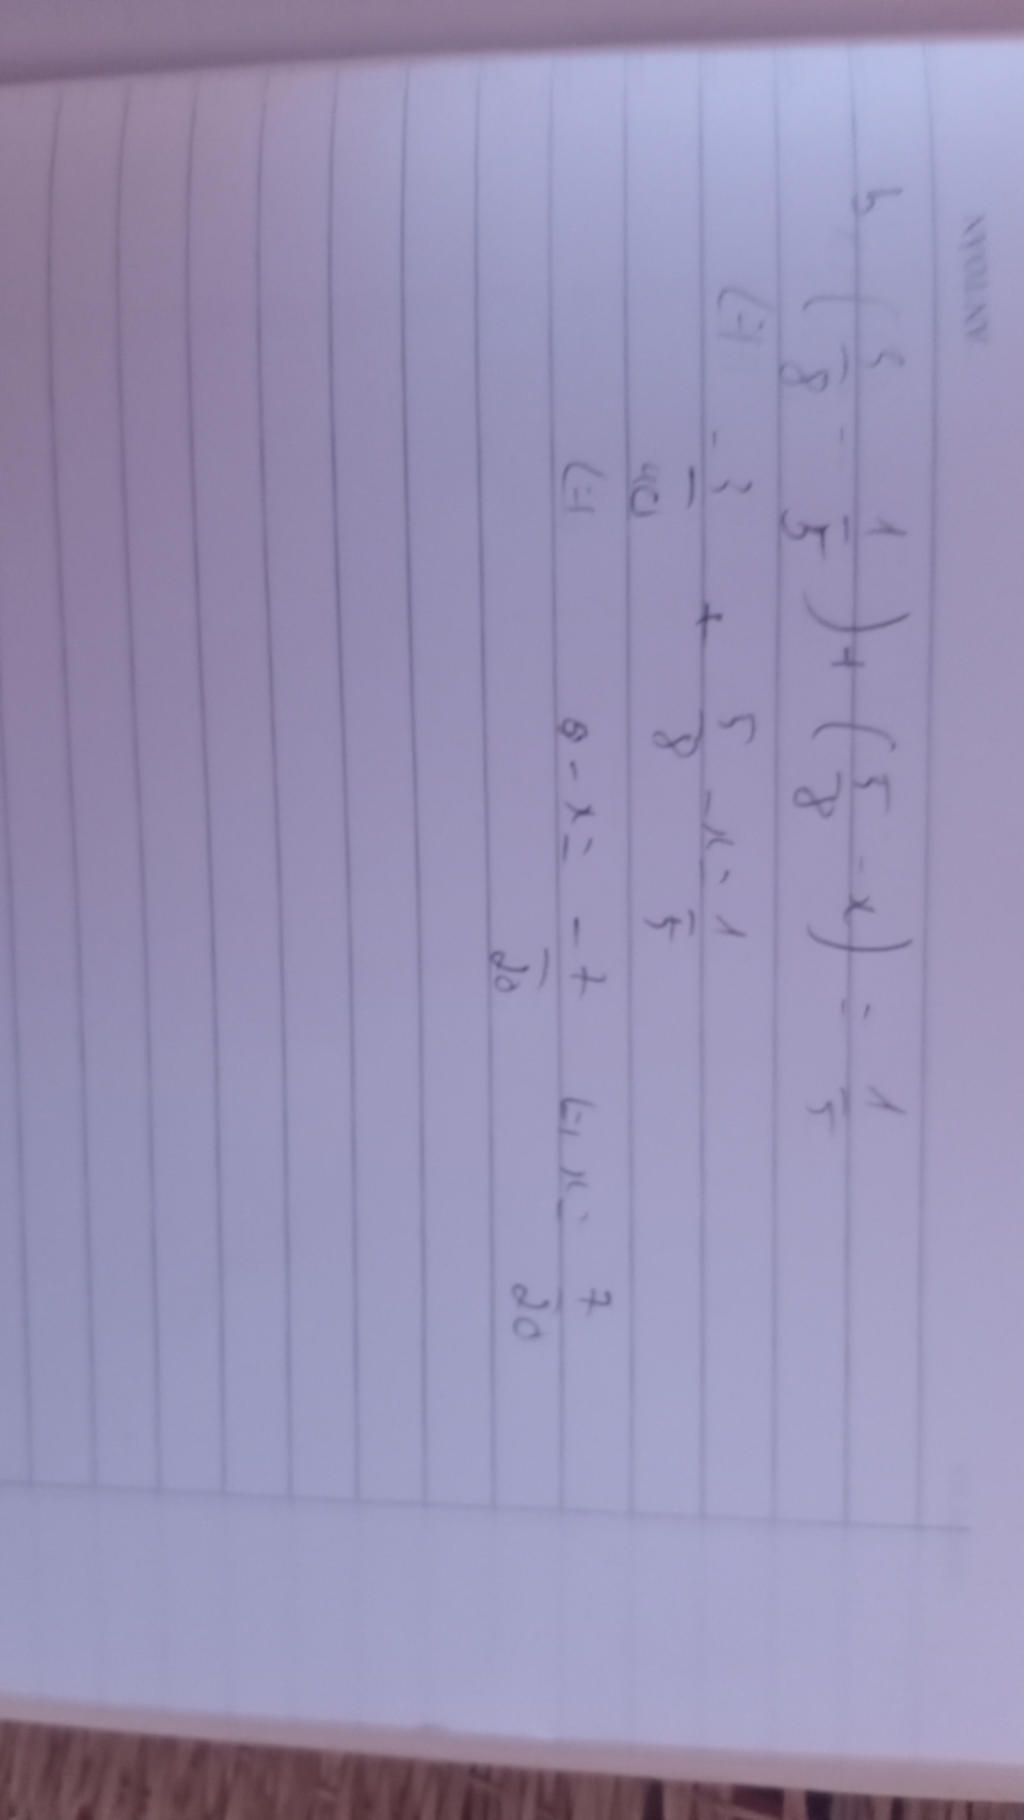 b, ( 1/8 - 1/5 ) + ( 5/8 - x) = 1/5
(=) - 3/40 + 5/8 - x = 1/5
(=) 0 - x = - 7/20 (=) x = 7/20